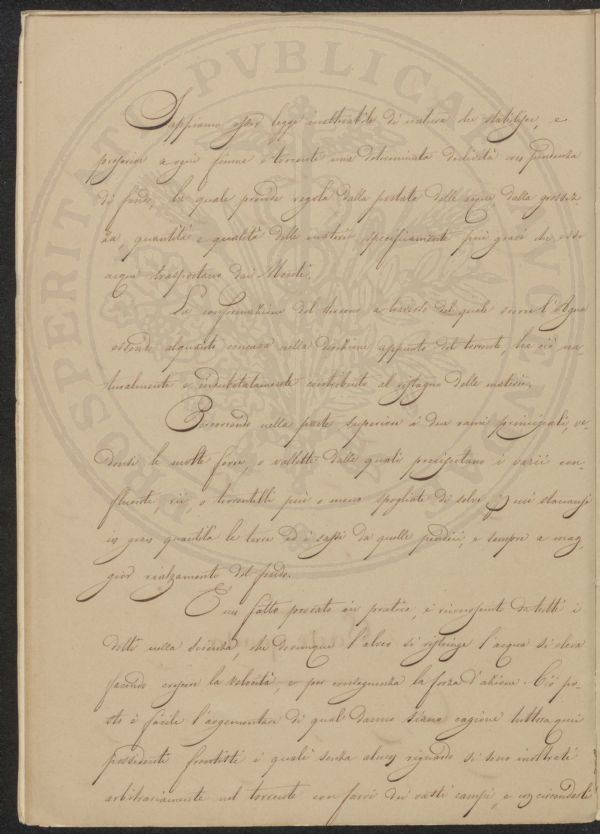 Sappiamo esser legge inalterabile di natura che stabilisce, e
prescrive a ogni fiume o torrente una determinata declività ossia pendenza
di fondo, la quale prende regola dalla portata delle acque, dalla grossez-
za, quantità e qualità delle materie specificamente più gravi che esse
acque trasportano dai Monti.
La conformazione del terreno a traverso del quale scorre l'Acqua
essendo alquanto concava nella direzione appunto del torrente, ha ciò na-
turalmente e indubitatamente contribuito al ristagno delle materie.
Percorrendo nella parte superiore i due rami principali, ve-
donsi le molte forre, o vallette dalle quali precipitano i varii con-
fluenti, rii, o torrentelli più o meno spogliate di selve
in gran quantità le terre ed i sassi da quelle pendici, e sempre a mag-
gior rialzamento del fondo.
È un fatto provato in pratica, e riconosciuto da tutti i
dotti nella scienza, che dovunque l'alveo si restringe l'acqua si eleva
facendo crescere la velocità e per conseguenza la forza d'azione. Ciò po-
sto è facile l'argomentare di qual danno siano cagione tuttora quei
possidenti frontisti i quali senza alcun riguardo si sono inoltrati
arbitrariamente nel torrente con farvi dei vasti campi, e circondarli
PROSPERITAS PVBLICA AVGET